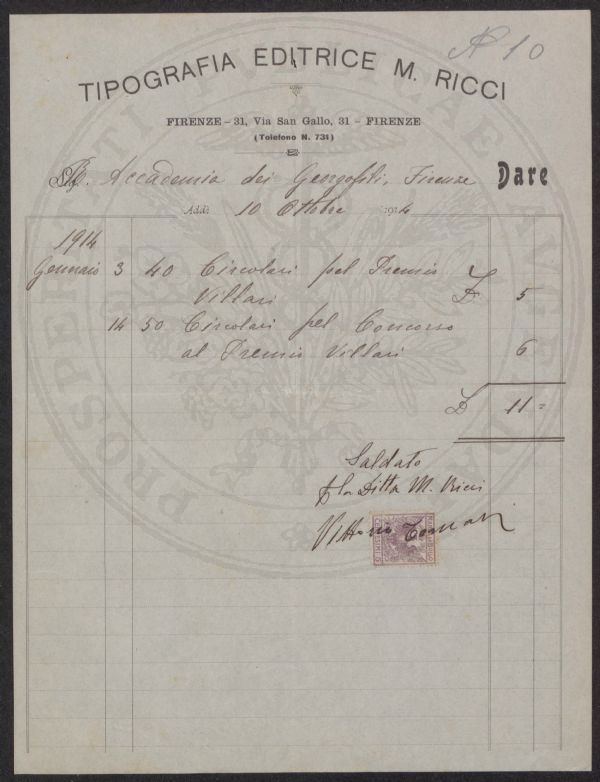 N 10
TIPOGRAFIA EDITRICE M. RICCI
FIRENZE – 31, Via San Gallo, 31 – FIRENZE
(Telefono N. 731)
R. Accademia dei Georgofili, Firenze Dare
Addì 10 Ottobre 1914
1914
Gennaio 3 40 Circolari pel Premio
Villari £ 5
14 50 Circolari pel Concorso
al Premio Villari 6
£ 11 =
Saldato
p la Ditta M. Ricci
Vittorio
PROSPERITATI PUBLICAE